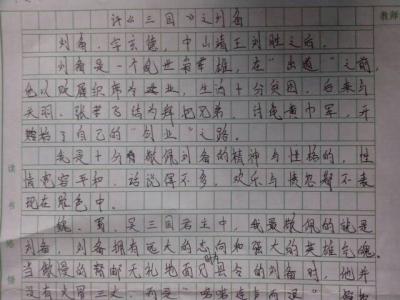 评《三国》之刘备
教师
刘备,字玄德,中山靖王刘胜之后。
刘备是一个乱世枭雄,在“出道”之前,
他以贩履织席为业,生活十分贫困。后来与
关羽、张飞结为拜把兄弟,讨伐黄巾军,开
始了自己的“创业”之路。
我是十分敬佩刘备的精神与性格的,性
情宽容平和,话说得不多,欢乐与愤怒都不表
现在脸色中。
魏、蜀、吴三国君主中,我最敬佩的就是
刘备,刘备拥有远大的志向和强大的英雄气魄。
当傲慢的督邮无礼地面见县令的刘备时,他并
没有